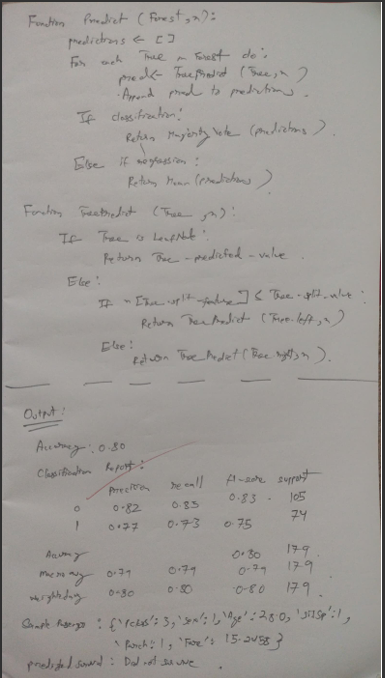 Function Predict (Forest, x):
predictions ← [ ]
For each Tree in Forest do:
pred ← TreePredict (Tree, x)
Append pred to predictions.
If classification:
Return Majority Vote (predictions).
Else if regression:
Return Mean (predictions)
Function TreePredict (Tree, x):
If Tree is LeafNode:
Return Tree-predicted-value.
Else:
If x [Tree-split-feature] ≤ Tree-split-value:
Return TreePredict (Tree.left, x)
Else:
Return TreePredict (Tree right, x).
Output:
Accuracy: 0.80
Classification Report:
precision recall f1-score support
0 0.82 0.85 0.83 105
1 0.77 0.73 0.75 74
Accuracy 0.80 179
macro avg 0.79 0.79 0.79 179
weighted avg 0.80 0.80 0.80 179
Sample Passenger: {'Pclass': 3, 'sex': 1, 'Age': 28.0, 'SibSp': 1,
'Parch': 1, 'Fare': 15.2458}
predicted survival: Did not survive.